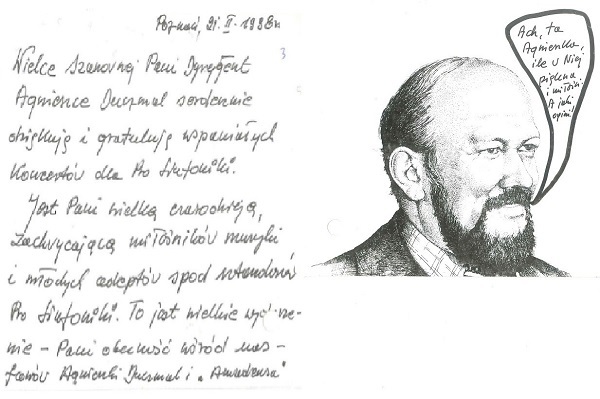 Poznań, 21.II.1998r
3
Wielce Szanownej Pani Dyrygent
Agnieszce Duczmal serdecznie
dziękuję i gratuluję wspaniałych
Koncertów dla Pro Sinfoniki.
Jest Pani wielką czarodziejką,
zachwycającą miłośników muzyki
i młodych adeptów spod sztandarów
Pro Sinfoniki. To jest wielkie wyróżnie-
nie – Pani obecność wśród nas –
fanów Agnieszki Duczmal i „Amadeusa”
Ach, ta
Agnieszka,
ile w Niej
piękna
i miłości.
A jaki